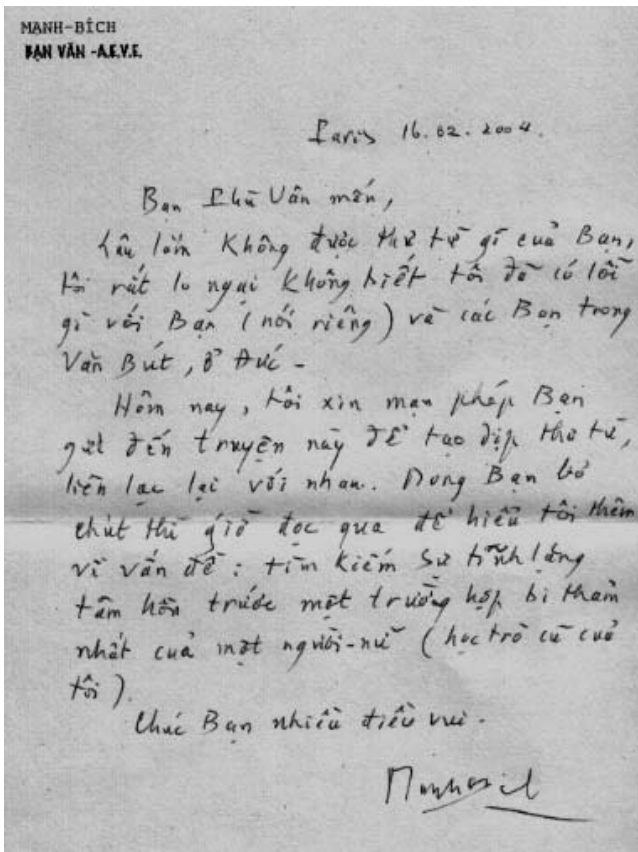 MẠNH-BÍCH
BẠN VĂN -A.E.V.E.
Paris 16.02.2004.
Bạn Phù Vân mến,
Lâu lắm không được thư từ gì của Bạn,
tôi rất lo ngại không biết tôi đã có lỗi
gì với Bạn (nói riêng) và các Bạn trong
Văn Bút, ở Đức -
Hôm nay, tôi xin mạn phép Bạn
gửi đến truyện này để tạo dịp thư từ,
liên lạc lại với nhau. Mong Bạn bỏ
chút thì giờ đọc qua để hiểu tôi thêm
về vấn đề : tìm kiếm sự tĩnh lặng
tâm hồn trước một trường hợp bi thảm
nhất của một người-nữ (học trò cũ của
tôi).
Chúc Bạn nhiều điều vui.